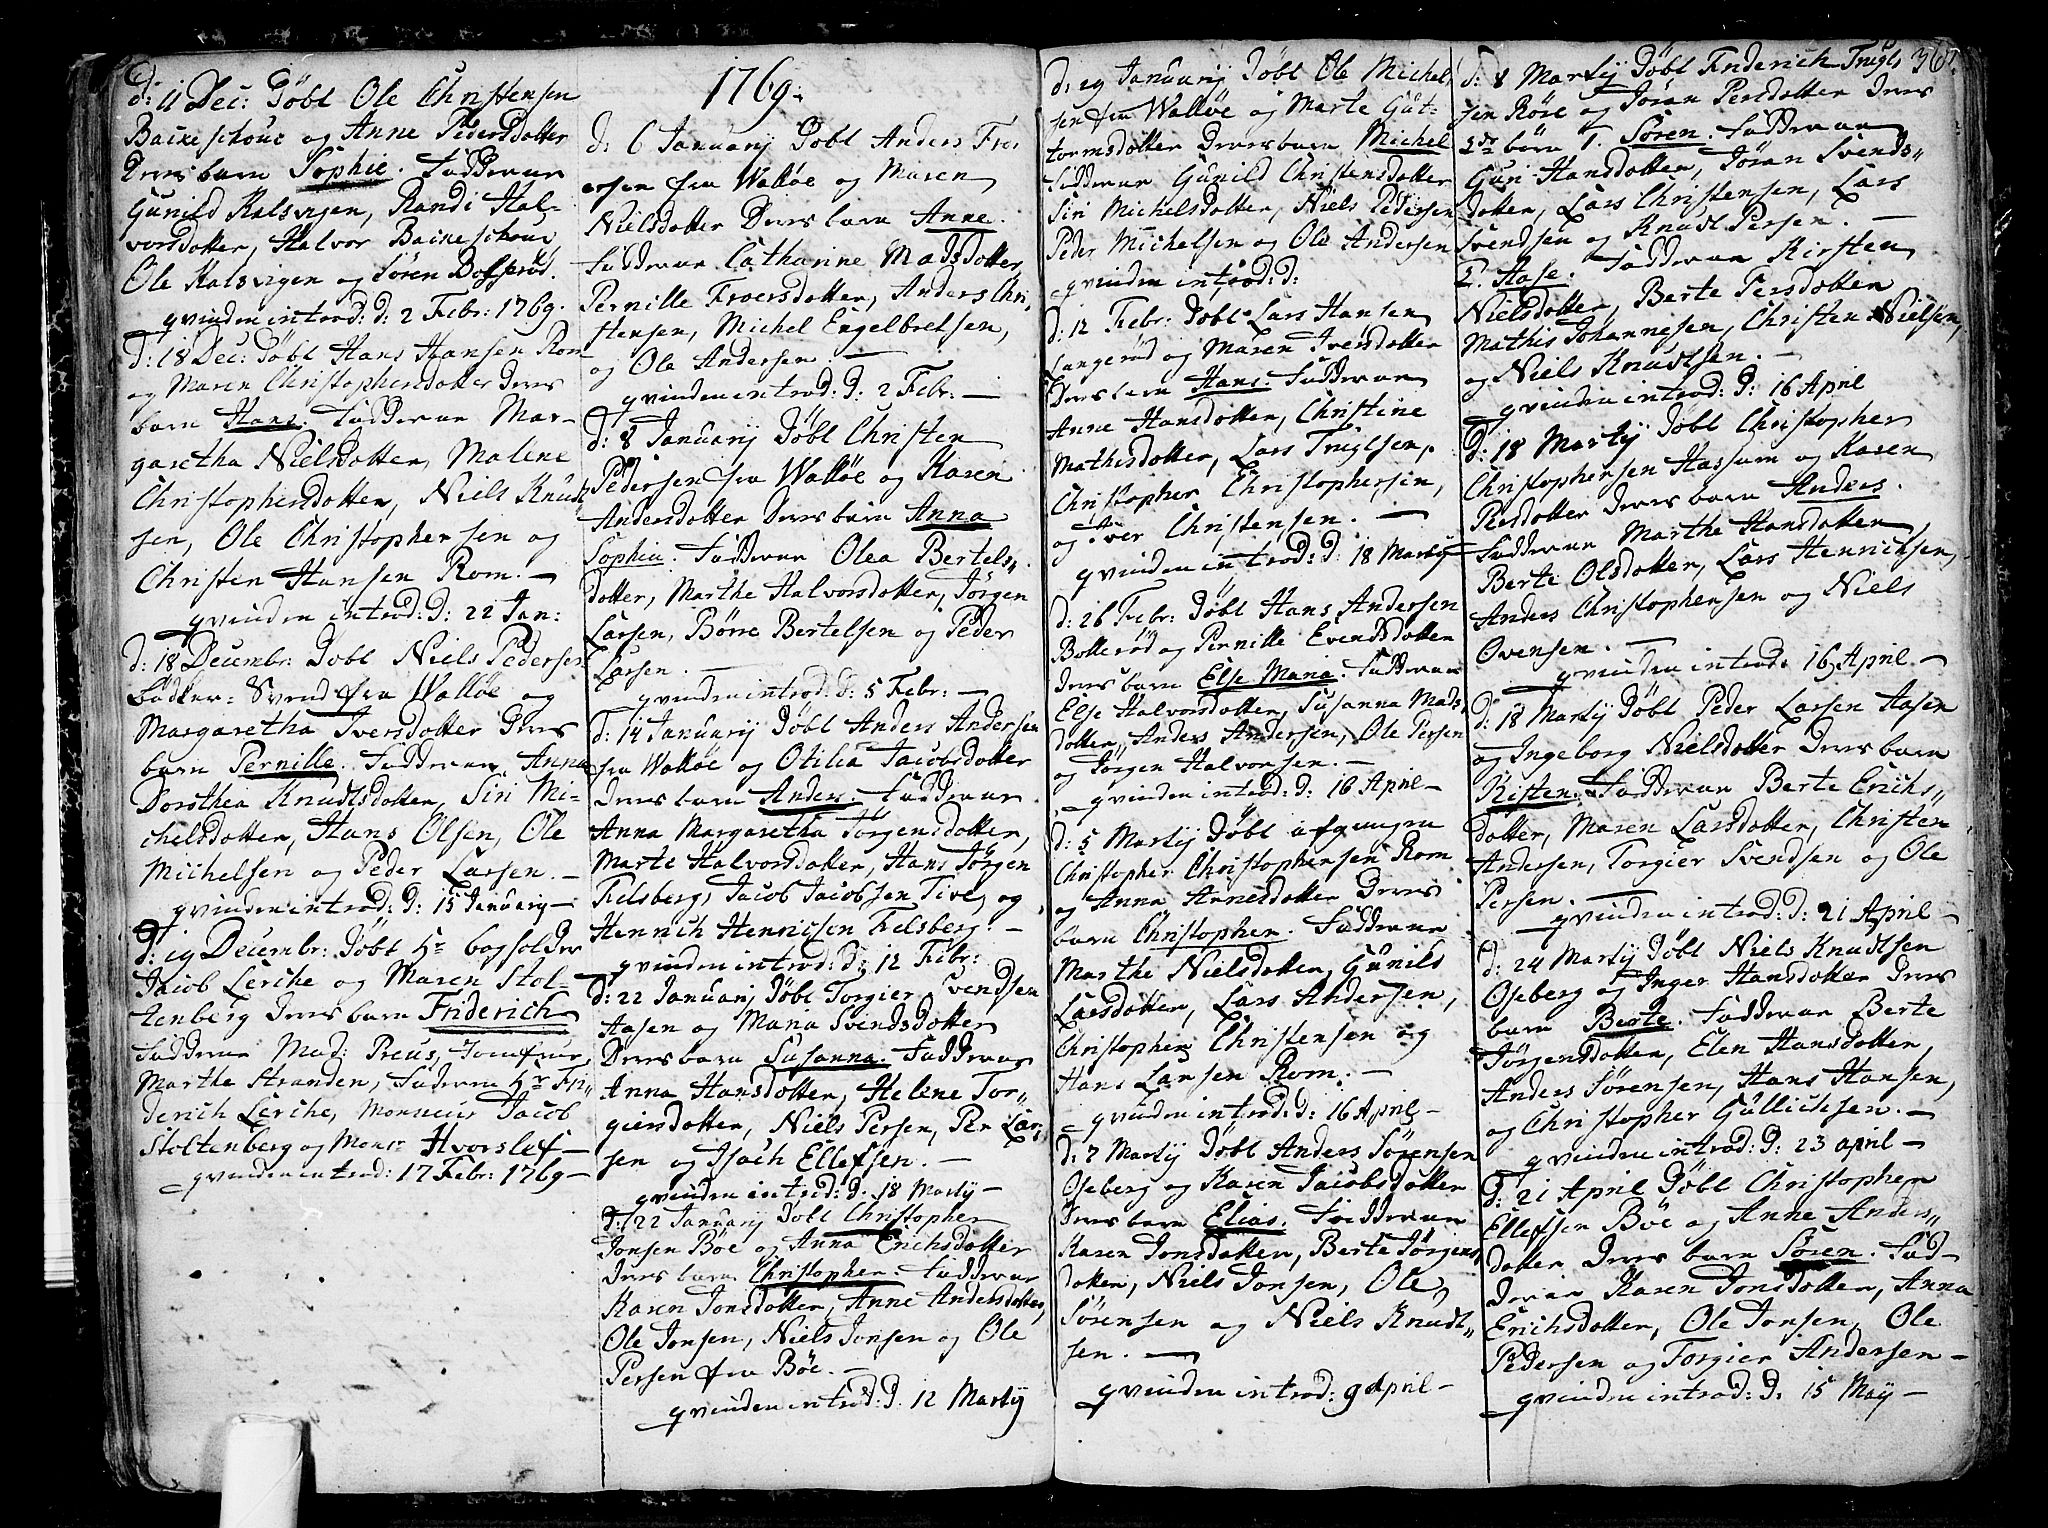 d: 11 Dec: Döbt Ole Christensen
Backeschouc og Anne Pedersdotter
Deres barn Sophie. Fadderne
Gunild Kalsvigen, Randi Hal-
vorsdotter, Halvor Backeschouv,
Ole Kalsvigen og Sören Bolleröd.
qvinden introd: d: 2 Febr: 1769.
d: 18 Dec: Döbt Hans Hansen Rom
og Maren Christophersdotter Deres
barn Hans. Fadderne Mar-
garetha Nielsdotter, Malene
Christophersdotter, Niels Knud-
sen, Ole Christophersen og
Christen Hansen Rom. —
qvinden introd: d: 22 Jan:
d: 18 Decembr: Döbt Niels Pedersen
Bödker-Svend fra Walløe og
Margaretha Iversdotter Deres
barn Pernille. Fadderne Anna
Dorothea Knudtsdotter, Siri Mi-
chelsdotter, Hans Olsen, Ole
Michelsen og Peder Larsen. —
qvinden introd: d: 15 January —
d: 19 Decembr: Döbt Hr bogholder
Jacob Lerche og Maren Stol-
tenberg Deres barn Friderich
Fadderne Mad: Preus, Jomfrue
Marthe Stranden, Faderne Hr Fri-
derich Lerche, Monsieur Jacob
Stoltenberg og Monsr Hvorslef —
qvinden introd: 17 Febr: 1769 —
1769.
d: 6 January Döbt Anders Fro-
ersen fra Walløe og Maren
Nielsdotter Deres barn Anne.
Fadderne Catharine Madsdotter
Pernille Froersdotter, Anders Chri-
stensen, Michel Engelbretsen,
og Ola Andersen. —
qvinden introd: d: 2 Febr: —
d: 8 January Döbt Christen
Pedersen fra Walløe og Karen
Andersdotter Deres barn Anna
Sophia. Fadderne Olea Bertels-
dotter, Marthe Halvorsdotter, Jörgen
Larsen, Börre Bertelsen og Peder
Larsen. —
qvinden introd: d: 5 Febr: —
d: 14 January Döbt Anders Andersen
fra Walløe og Otilia Jacobsdotter
Deres barn Anders. Fadderne
Anna Margaretha Jörgensdotter,
Marte Halvorsdotter, Hans Jörgen
Felsberg, Jacob Jacobsen Tive, og
Henrich Henrichsen Felsberg. —
qvinden introd: d: 12 Febr:
d: 22 January Döbt Torgier Svendsen
Aasen og Maria Svendsdotter
Deres barn Susanna. Fadderne
Anna Hansdotter, Helene Tor-
giersdotter, Niels Persen, Per Lar-
sen og Isach Ellefsen. —
qvinden introd: d. 18 Martij —
d: 22 January Döbt Christopher
Jonsen Böe og Anna Erichsdotter
Deres barn Christopher. Fadderne
Karen Jonsdotter, Anne Andersdotter,
Ole Jonsen, Niels Jonsen og Ole
Persen fra Böe. —
qvinden introd: d. 12 Martij
d: 29 January Döbt Ole Michel-
sen fra Walløe og Marte Gut-
tormsdotter Deres barn Michel
Fadderne Gunild Christensdotter
Siri Michelsdotter, Niels Pedersen
Peder Michelsen og Ole Andersen
qvinden introd: d:
d: 12 Febr: Döbt Lars Hansen
Langeröd og Maren Iversdotter
Deres barn Hans. Fadderne
Anne Hansdotter, Christine
Mathisdotter, Lars Trugelsen,
Christopher Christophersen,
og Iver Christensen. —
qvinden introd: d: 18 Martij
d: 26 Febr: Döbt Hans Andersen
Bolleröd og Pernille Evendsdotter
Deres barn Else Maria. Fadderne
Else Halvorsdotter, Susanna Mads-
dotter, Anders Andersen, Ole Persen
og Jörgen Halvorsen. —
qvinden introd: d: 16 April —
d: 5 Martij Döbt afgangne
Christopher Christophersen Rom
og Anna Arnesdotter Deres
barn Christopher. Fadderne
Marthe Nielsdotter, Gunild
Larsdotter, Lars Andersen,
Christopher Christensen og
Hans Larsen Rom. —
qvinden introd: d: 16 April —
d: 7 Martij Döbt Anders Sörensen
Oseberg og Karen Jacobsdotter
Deres barn Elias. Fadderne
Karen Jonsdotter, Berte Jörgens-
dotter, Niels Jonsen, Ole
Sörensen og Niels Knudt-
sen. —
qvinden introd: 9 April —
367.
d: 8 Martij Döbt Friderich Trugels
sen Röse og Jöran Persdotter Deres
2de börn 1. Sören. Fadderne
Guri Hansdotter, Jöran Svends-
dotter, Lars Christensen, Lars
Svendsen og Knudt Persen. —
2. Aase. Fadderne Kirsten
Nielsdotter, Berte Persdotter
Mathis Johannesen, Christen Nielsen,
og Niels Knudtsen. —
qvinden introd: d: 16 April
d: 18 Martij Döbt Christopher
Christophersen Hassum og Karen
Persdotter Deres barn Anders.
Fadderne Marthe Hansdotter,
Berte Olsdotter, Lars Henrichsen,
Anders Christophersen og Niels
Ovensen. —
qvinden introd: 16 April —
d: 18 Martij Döbt Peder Larsen Aasen
og Ingeborg Nielsdotter Deres barn
Kisten. Fadderne Berte Erichs-
dotter, Maren Larsdotter, Christen
Andersen, Torgier Svendsen og Ole
Persen. —
qvinden introd: d: 21 April —
d: 24 Martij Döbt Niels Knudtsen
Oseberg og Inger Hansdotter Deres
barn Berte. Fadderne Berte
Jörgensdotter, Elen Hansdotter,
Anders Sörensen, Hans Hansen,
og Christopher Gullichsen. —
qvinden introd: d. 23 april —
d: 21 April Döbt Christopher
Ellefsen Böe og Anne Anders-
dotter Deres barn Sören. Fad-
derne Karen Jonsdotter, Anna
Erichsdotter, Ole Jonsen, Ole
Pedersen og Torgier Andersen —
qvinden introd: d. 15 May —